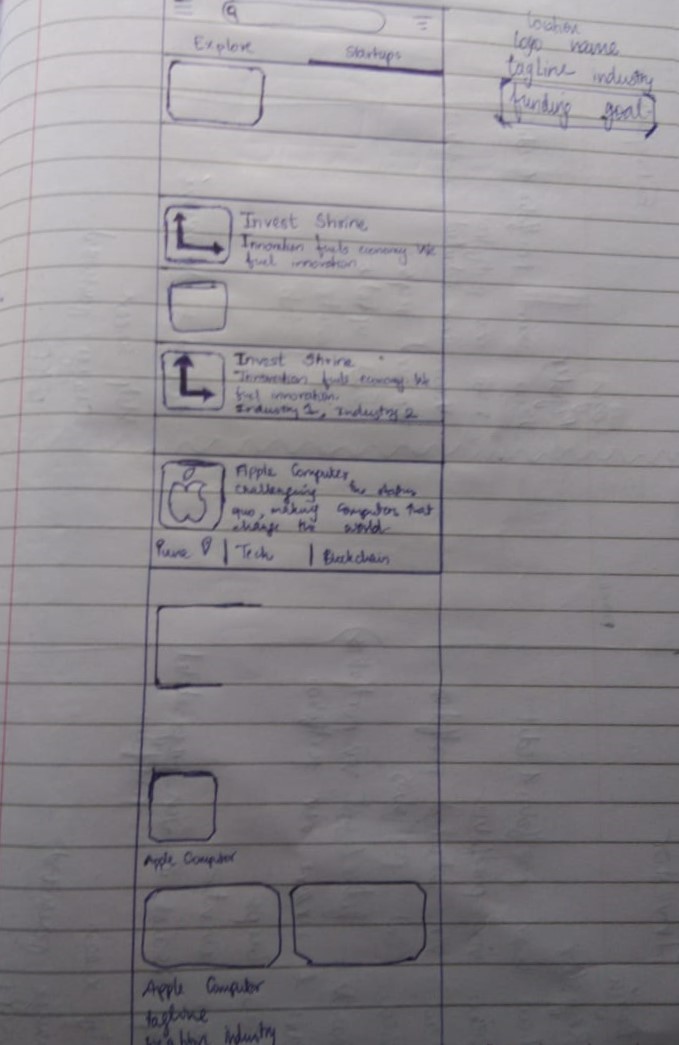 Explore
Startups
location
logo name
tagline industry
funding goal
Invest Shrine
Innovation fuels economy We
fuel innovation
Invest Shrine
Innovation fuels economy We
fuel innovation.
Industry 1, Industry 2
Apple Computer,
challenging the status
quo, making computers that
change the world
Pune | Tech | Blockchain
Apple Computer
Apple Computer
tagline
Industry